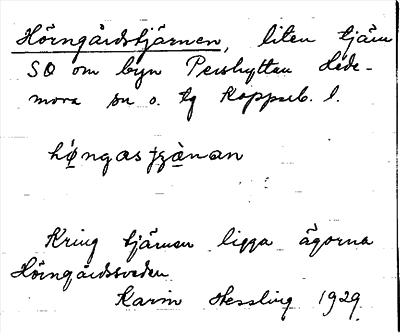 Hörngårdstjärnen, liten tjärn
SO om byn Pershyttan Hede-
mora sn o. tg Kopparb. l.
Kring tjärnen ligga ägorna
Hörngårdsveden
Karin Hessling 1929.